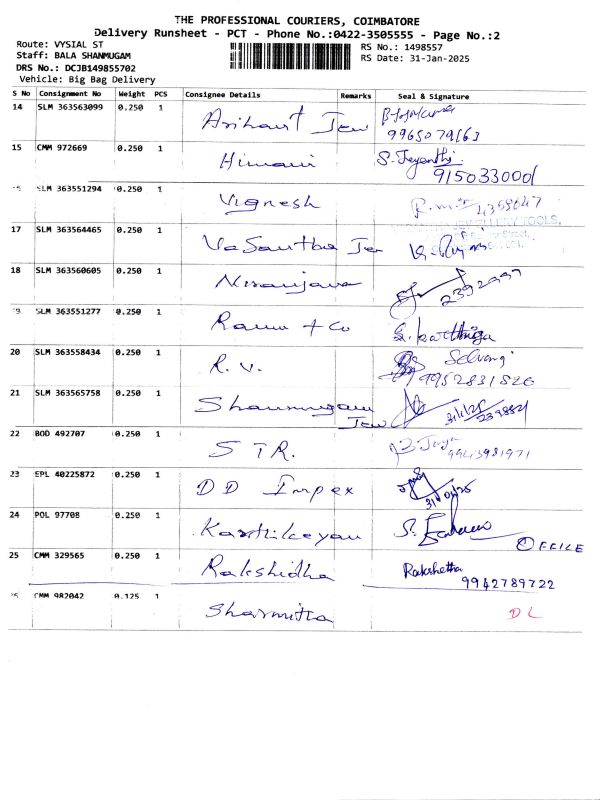 THE PROFESSIONAL COURIERS, COIMBATORE
Delivery Runsheet - PCT - Phone No.:0422-3505555 - Page No.:2
Route: VYSIAL ST
Staff: BALA SHANMUGAM
DRS No.: DCJB149855702
Vehicle: Big Bag Delivery
RS No.: 1498557
RS Date: 31-Jan-2025
S No Consignment No Weight PCS Consignee Details Remarks Seal & Signature
14 SLM 363563099 0.250 1 Arihant Jew
15 CMM 972669 0.250 1 Himani S. Jeyanthi
9150330001
SLM 363551294 0.250 1 Vignesh
TOOLS,
Street,
17 SLM 363564465 0.250 1 Vasantha Jew
18 SLM 363560605 0.250 1 Niranjana 2392997
SLM 363551277 0.250 1 Ramu + Co S. karthiga
20 SLM 363558434 0.250 1 R. V. Selvangi
9952831526
21 SLM 363565758 0.250 1 Shanmugam
Jew
22 BOD 492707 0.250 1 STR.
9943981971
23 EPL 40225872 0.250 1 DD Impex
31/01/25
24 POL 97708 0.250 1 Karthikeyan
OFFICE
25 CMM 329565 0.250 1 Rakshidha Rakshetha
9942789722
CMM 982042 0.125 1 Sharmitha DL